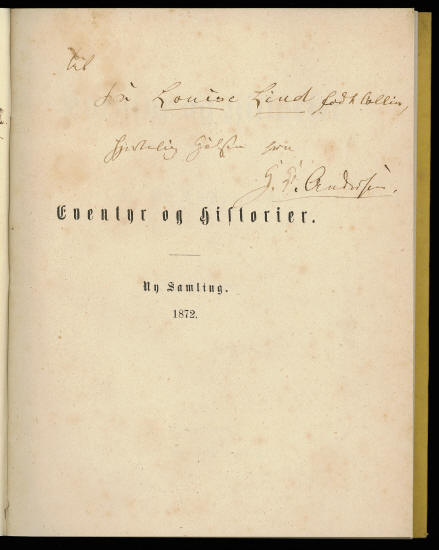 Til
Fru Louise Lind født Collin,
hjertelig Hilsen fra
H. C. Andersen.
Eventyr og Historier.
Ny Samling.
1872.